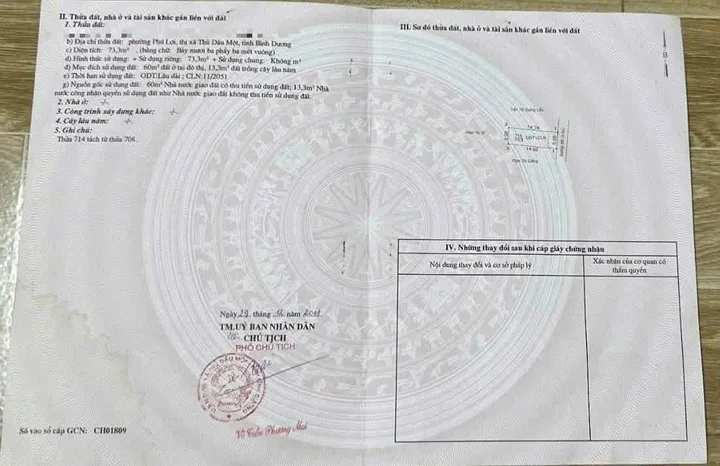 II. Thửa đất, nhà ở và tài sản khác gắn liền với đất
1. Thửa đất:
b) Địa chỉ thửa đất: phường Phú Lợi, thị xã Thủ Dầu Một, tỉnh Bình Dương
c) Diện tích: 73,3m² (bằng chữ: Bảy mươi ba phẩy ba mét vuông)
d) Hình thức sử dụng: + Sử dụng riêng: 73,3m² + Sử dụng chung: Không m²
đ) Mục đích sử dụng: 60m² đất ở tại đô thị, 13,3m² đất trồng cây lâu năm
e) Thời hạn sử dụng đất: ODT:Lâu dài ; CLN:11/2051
g) Nguồn gốc sử dụng đất: 60m² Nhà nước giao đất có thu tiền sử dụng đất; 13,3m² Nhà
nước công nhận quyền sử dụng đất như Nhà nước giao đất không thu tiền sử dụng đất.
2. Nhà ở: -/-
3. Công trình xây dựng khác: -/-
4. Cây lâu năm: -/-
5. Ghi chú:
Thửa 714 tách từ thửa 708.
Ngày 29 tháng năm 2011
TM.UỶ BAN NHÂN DÂN
CHỦ TỊCH
PHÓ CHỦ TỊCH
Số vào sổ cấp GCN: CH01809
III. Sơ đồ thửa đất, nhà ở và tài sản khác gắn liền với đất
ODT+CLN
5.00
5.00
IV. Những thay đổi sau khi cấp giấy chứng nhận
Nội dung thay đổi và cơ sở pháp lý
Xác nhận của cơ quan có
thẩm quyền